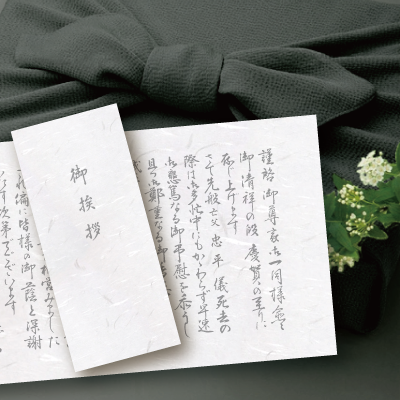 御挨拶
謹啓 御尊家御一同様愈々
御清祥の段 慶賀の至りに
存じ上げます
さて先般亡父 忠平 儀死去の
際は御多忙中にもかかわらず早速
御懇篤なる御弔慰を忝うし
且つ御鄭重なる御
相営みました
これ偏に皆様の御蔭と深謝
致す次第でございます